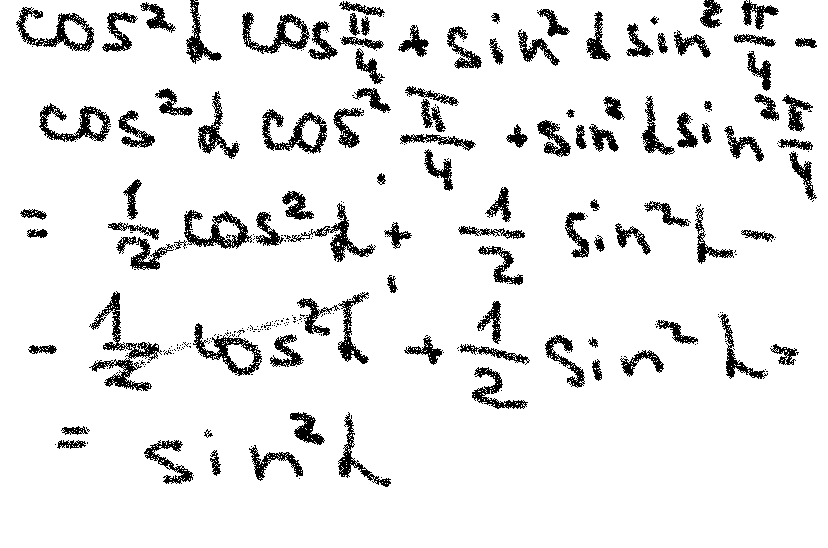 cos²α cos π/4 + sin²α sin² π/4 -
cos²α cos² π/4 + sin²α sin² π/4
= 1/2 cos²α + 1/2 sin²α -
- 1/2 cos²α + 1/2 sin²α =
= sin²α